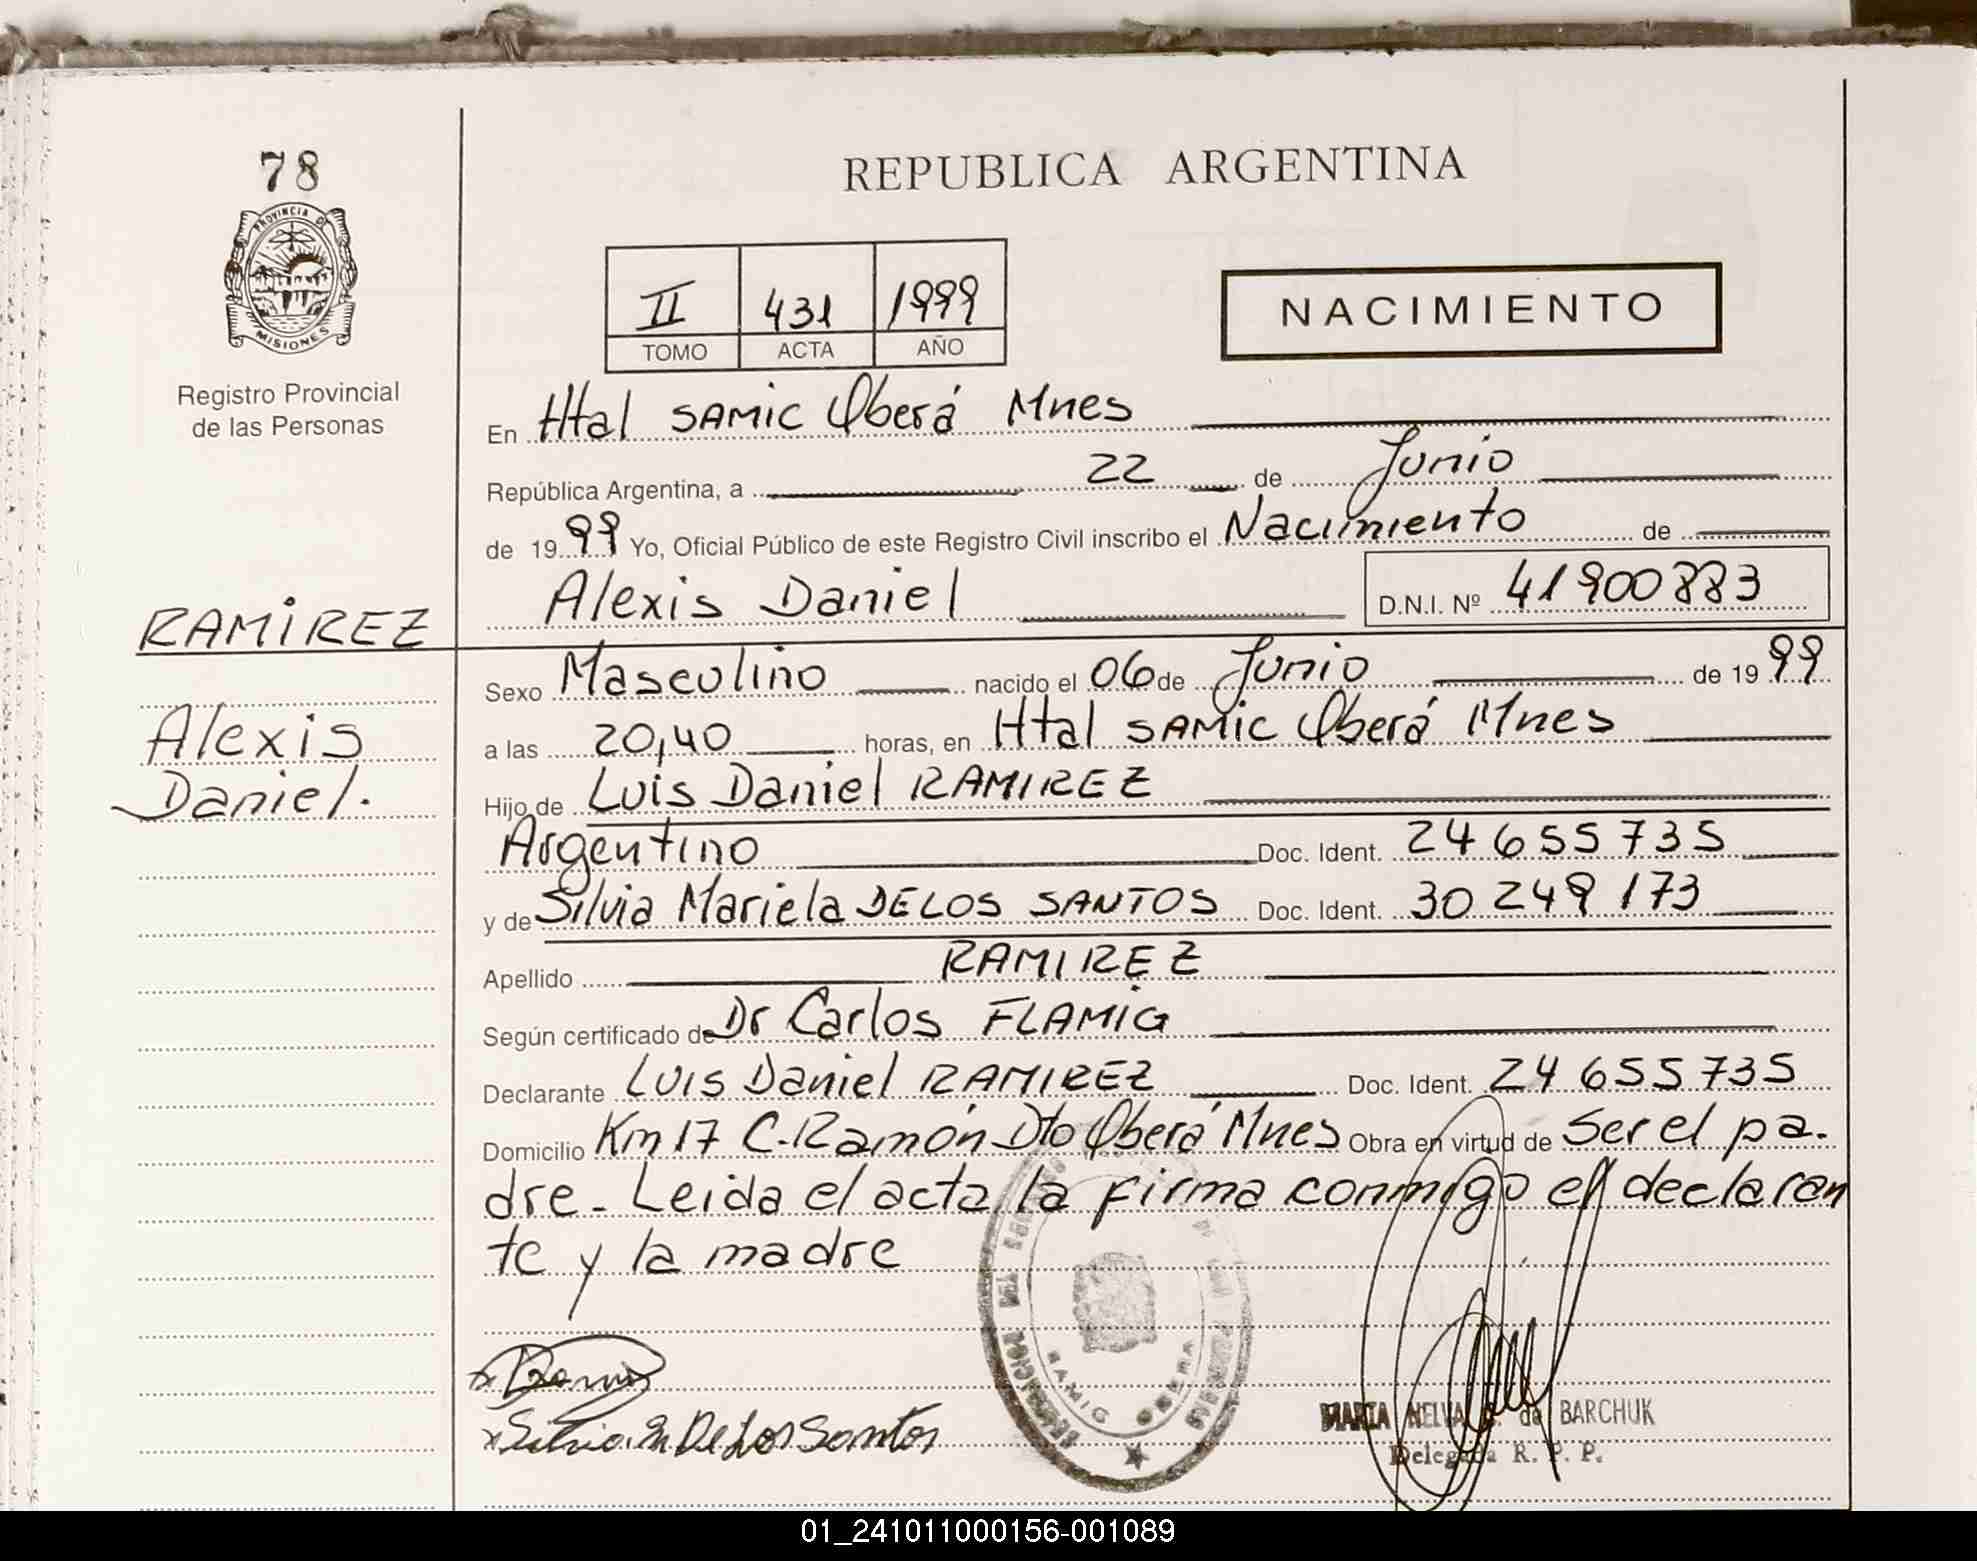 78
REPUBLICA ARGENTINA
PROVINCIA DE
MISIONES
Registro Provincial
de las Personas
II 431 1999
TOMO ACTA AÑO
NACIMIENTO
En Htal SAMIC Oberá Mnes
República Argentina, a 22 de Junio
de 19 99 Yo, Oficial Público de este Registro Civil inscribo el Nacimiento de
Alexis Daniel D.N.I. Nº 41900883
RAMIREZ
Alexis
Daniel.
Sexo Masculino nacido el 06 de Junio de 19 99
a las 20,40 horas, en Htal SAMIC Oberá Mnes
Hijo de Luis Daniel RAMIREZ
Argentino Doc. Ident. 24 655 735
y de Silvia Mariela DE LOS SANTOS Doc. Ident. 30 249 173
Apellido RAMIREZ
Según certificado de Dr Carlos FLAMIG
Declarante Luis Daniel RAMIREZ Doc. Ident. 24 655 735
Domicilio Km 17 C. Ramón Dto Oberá Mnes Obra en virtud de ser el pa-
dre - Leida el acta la firma conmigo el declaran
te y la madre
SAMIC OBERA
Silvia M De Los Santos
MARIA NELVA de BARCHUK
Delegada R. P. P.
01_241011000156-001089